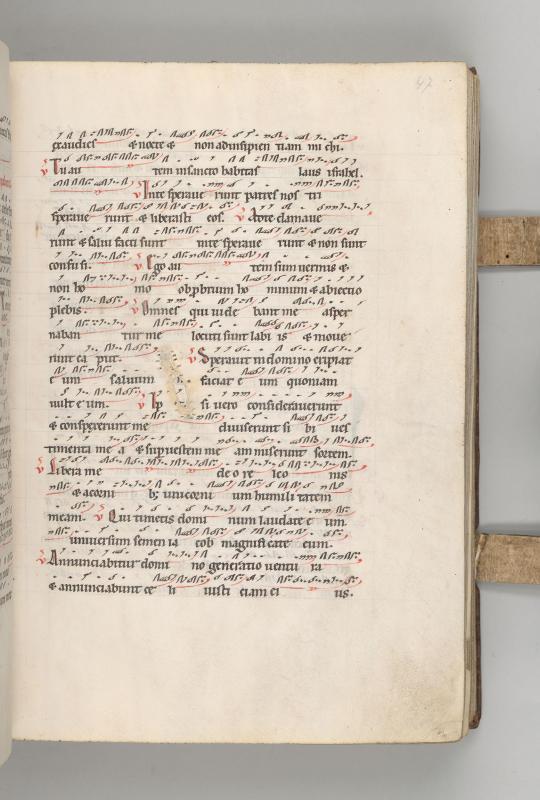 47
exaudies & nocte & non ad insipien tiam mi chi.
v Tu au tem in sancto habitas laus israhel.
v In te sperave runt patres nos tri
sperave runt & liberasti eos. v Ad te clamave
runt & salvi facti sunt in te sperave runt & non sunt
confusi. v Ego au tem sum vermis &
non ho mo obprobrium ho minum & abiectio
plebis. v Omnes qui vide bant me asper
naban tur me locuti sunt labi is & move
runt ca put. v Speravit in domino eripiat
e um salvum faciat e um quoniam
vult e um. v Ip si vero consideraverunt
& conspexerunt me diviserunt si bi ves
timenta me a & sup vestem me am miserunt sortem.
v Libera me de o re leo nis
& a corni b; unicorni um humili tatem
meam. v Qui timetis domi num laudate e um
universum semen ia cob magnificate eum.
v Annunciabitur domi no generatio ventu ra
& annunciabunt ce li iusti ciam ei ius.